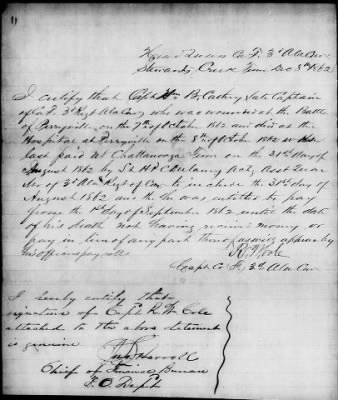 Head Quarters Co. F. 3d Ala Cav
Stewarts Creek Tenn Dec 3d 1862
I certify that Capt W B Cathey late Captain
of Co F. 3d Regt Ala Cav who was wounded at the Battle
of Perryville on the 7th of October 1862 and died at the
Hospital at Perryville on the 8th of October 1862 was
last paid at Chattanooga Tenn on the 31st day of
August 1862 by Lt Act Asst Quar
Mr of 3d Ala Regt of Cav to include the 31st day of
August 1862 and that he was entitled to pay
from the 1st day of September 1862 until the date
of his death not having received money or
pay in lieu of any part thereof as will appear by
his officers pay rolls
R W Cole
Capt Co F, 3d Ala Cav
I hereby certify that
signature of Capt R. W. Cole
attached to the above statement
is genuine
Chief of Finance Bureau
Q. O Dept